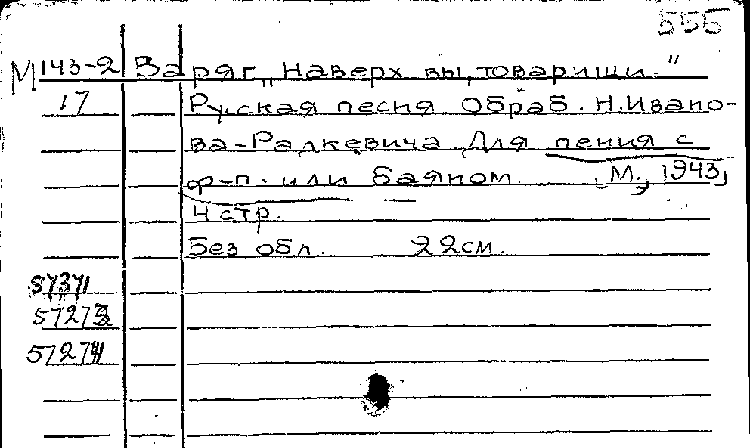 556
М 143-2 Варяг „Наверх вы, товарищи."
17 Русская песня Обраб. Н. Ивано-
ва-Радкевича Для пения с
ф-п. или баяном. М., 1943,
4 стр.
Без обл. 22 см.
57371
57273
57274